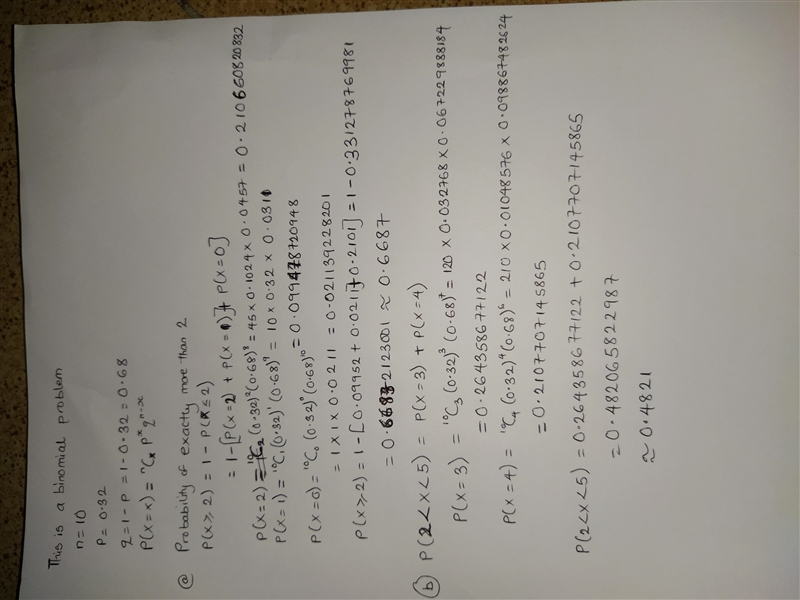 This is a binomial problem
n = 10
P = 0.32
q = 1 - P = 1 - 0.32 = 0.68
P(X = x) = ⁿCₓ Pˣ qⁿ⁻ˣ
(a) Probability of exactly more than 2
P(X ≥ 2) = 1 - P(X ≤ 2)
= 1 - [P(X = 2) + P(X = 1)] + P(X = 0)]
P(X = 2) = ¹⁰C₂ (0.32)² (0.68)⁸ = 45 × 0.1024 × 0.0457 = 0.210660820832
P(X = 1) = ¹⁰C₁ (0.32)¹ (0.68)⁹ = 10 × 0.32 × 0.0311
= 0.099478720948
P(X = 0) = ¹⁰C₀ (0.32)⁰ (0.68)¹⁰
= 1 × 1 × 0.0211 = 0.021139228201
P(X ≥ 2) = 1 - [0.09952 + 0.0211 + 0.2101] = 1 - 0.331278769981
= 0.66872123001 ≈ 0.6687
(b) P(2 < X < 5) = P(X = 3) + P(X = 4)
P(X = 3) = ¹⁰C₃ (0.32)³ (0.68)⁷ = 120 × 0.032768 × 0.067229888184
= 0.264358677122
P(X = 4) = ¹⁰C₄ (0.32)⁴ (0.68)⁶ = 210 × 0.01048576 × 0.098867482624
= 0.217707145865
P(2 < X < 5) = 0.264358677122 + 0.217707145865
= 0.482065822987
≈ 0.4821